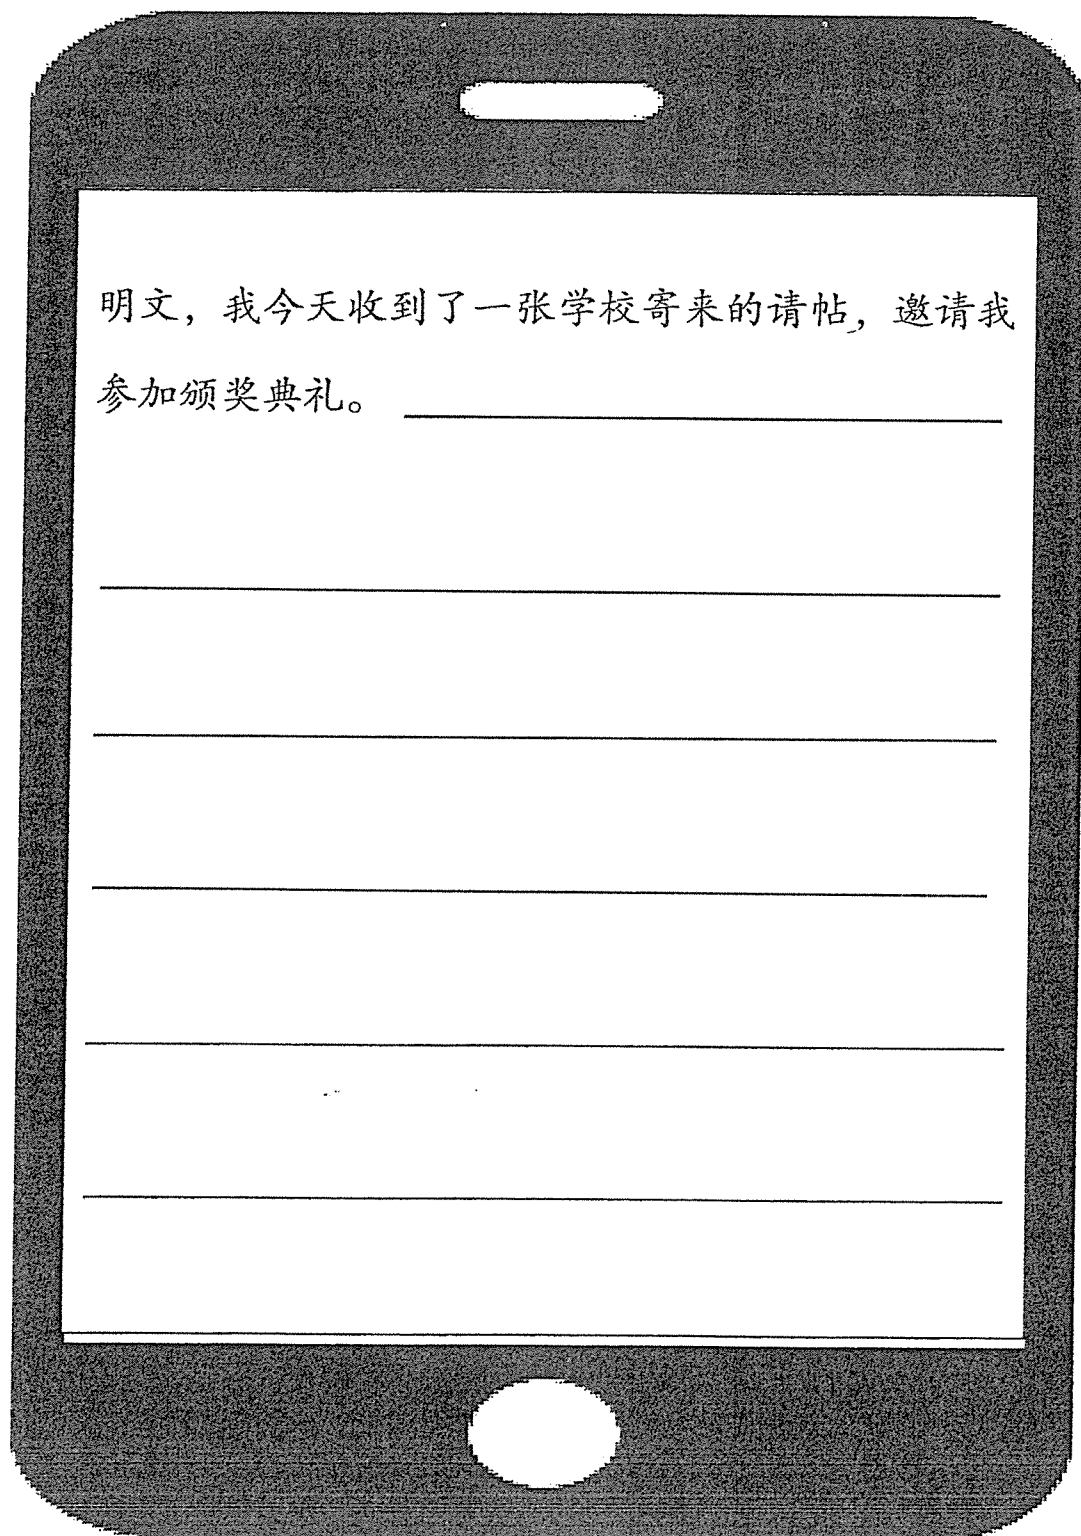 明文，我今天收到了一张学校寄来的请帖，邀请我
参加颁奖典礼。